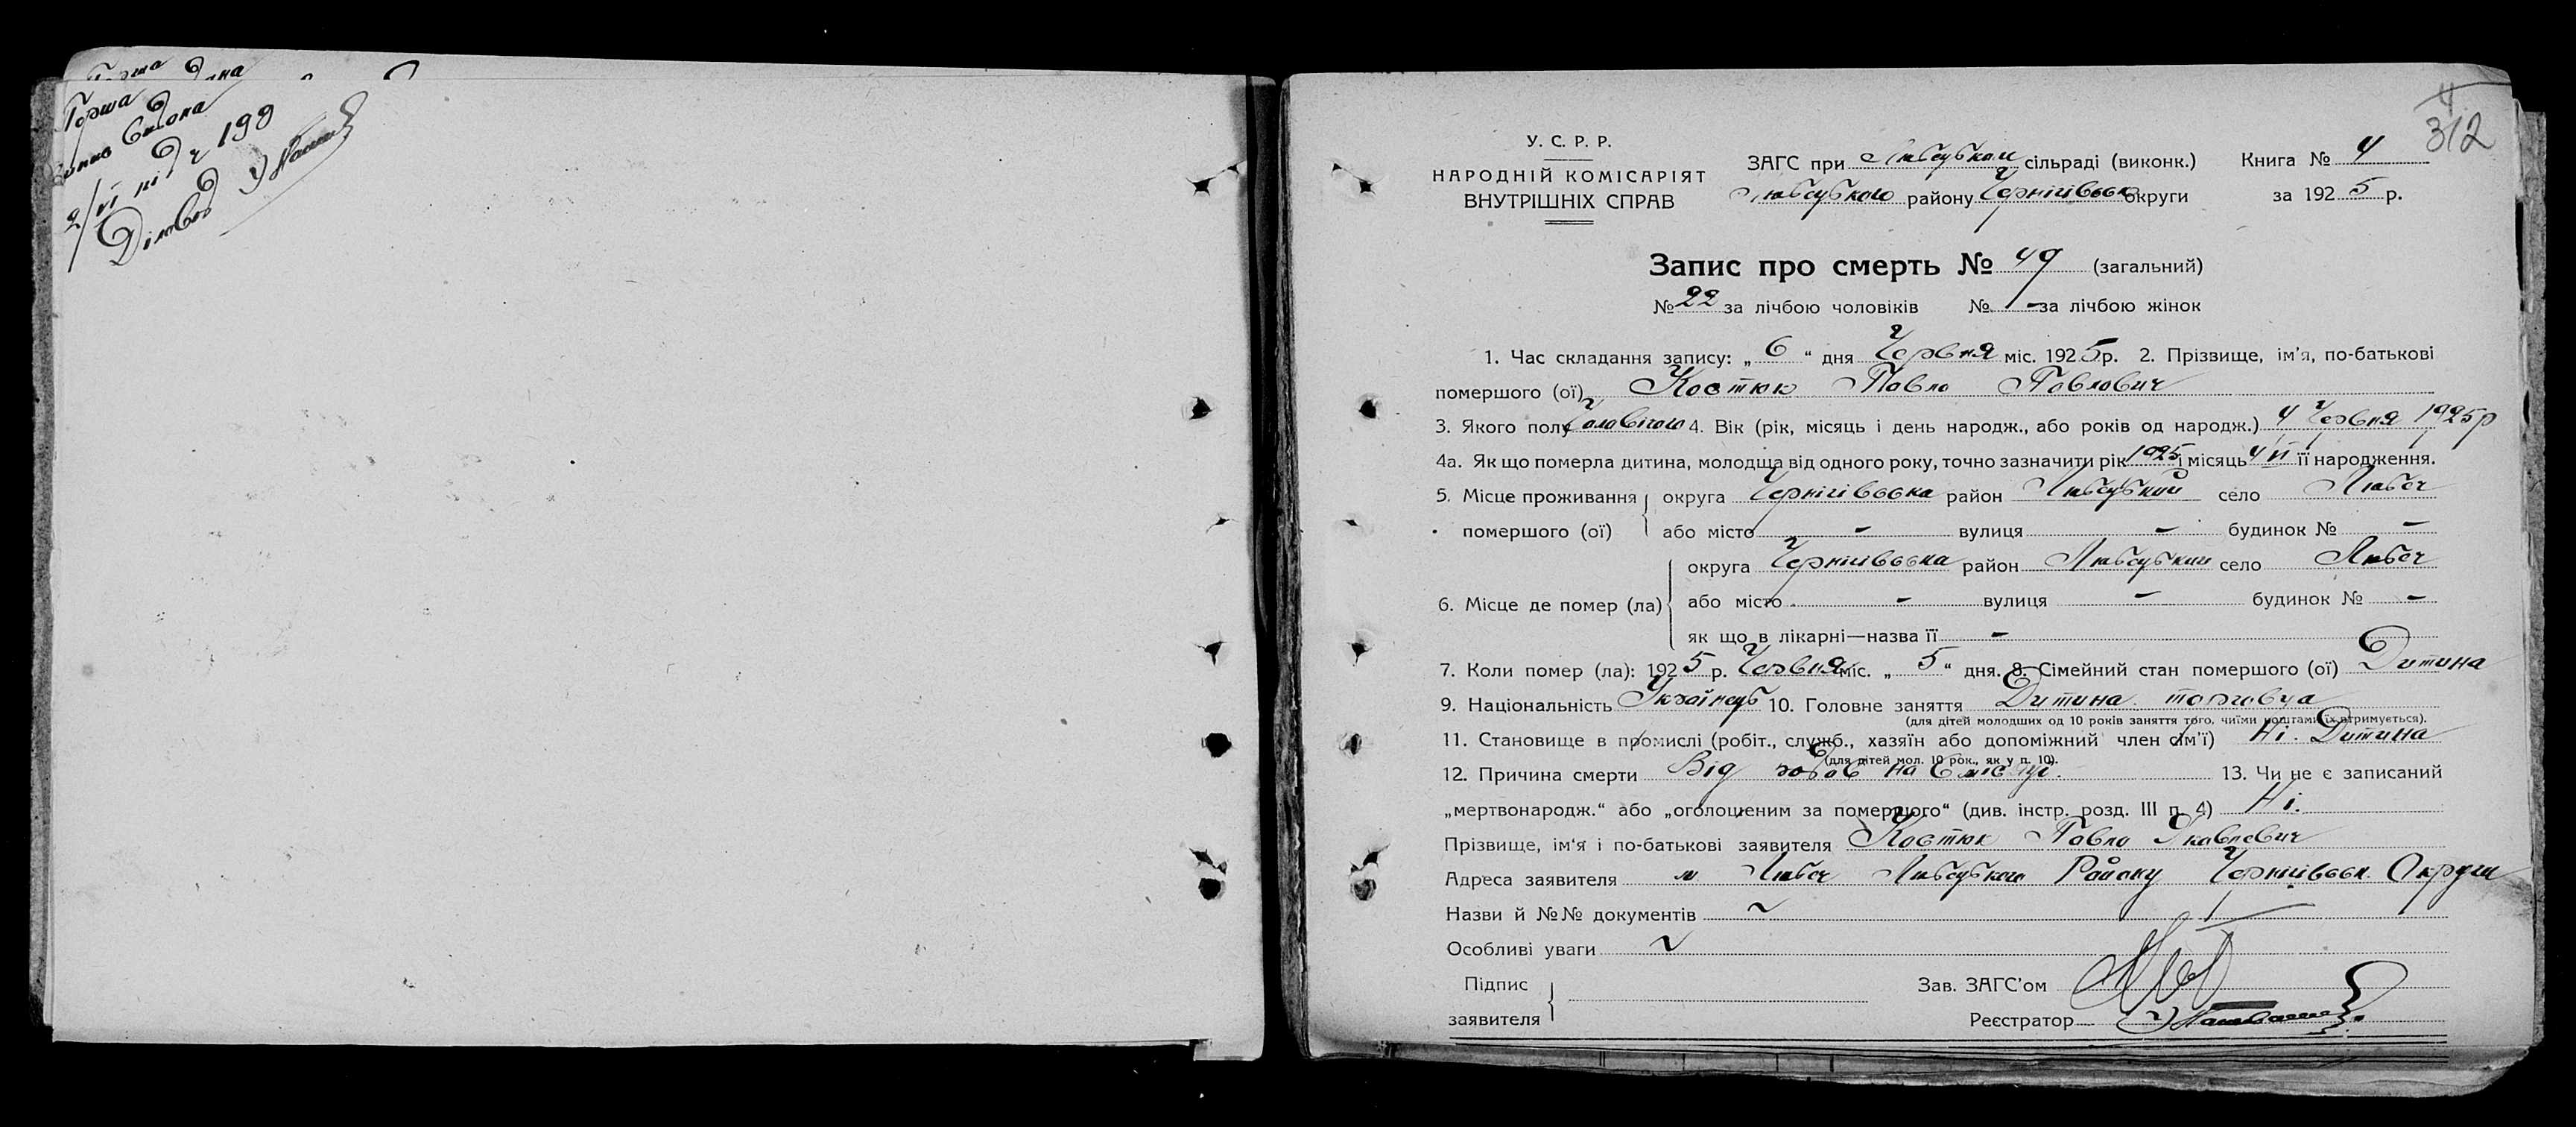 Перша
Видана
2/VI
312
У. С. Р. Р.
НАРОДНІЙ КОМІСАРІЯТ
ВНУТРІШНІХ СПРАВ
ЗАГС при Любецькой сільраді (виконк.) Книга № 4
Любецького району Чернігівськ округи за 1925 р.
Запис про смерть № 49 (загальний)
№ 22 за лічбою чоловіків № - за лічбою жінок
1. Час складання запису: „ 6 “ дня Червня міс. 1925 р. 2. Прізвище, ім'я, по-батькові
помершого (ої) Костюк Павло Павлович
3. Якого полу Чоловічого 4. Вік (рік, місяць і день народж., або років од народж.) 4 Червня 1925 р
4а. Як що померла дитина, молодша від одного року, точно зазначити рік 1925 і місяць 4 VI її народження.
5. Місце проживання округа Чернігівська район Любецький село Любеч
помершого (ої) або місто - вулиця - будинок № -
округа Чернігівська район Любецький село Любеч
6. Місце де помер (ла) або місто - вулиця - будинок № -
як що в лікарні—назва її -
7. Коли помер (ла): 1925 р. Червня міс. „ 5 “ дня. 8. Сімейний стан помершого (ої) Дитина
9. Національність Українець 10. Головне заняття Дитина торговця
(для дітей молодших од 10 років заняття того, чиїми коштами їх втримується).
11. Становище в промислі (робіт., служб., хазяїн або допоміжний член сім'ї) Ні. Дитина
(для дітей мол. 10 рок., як у п. 10).
12. Причина смерти Від родов на 6 місяці. 13. Чи не є записаний
„мертвонародж.“ або „оголошеним за помершого“ (див. інстр. розд. III п. 4) Ні.
Прізвище, ім'я і по-батькові заявителя Костюк Павло Яковлевич
Адреса заявителя м Любеч Любецького Району Чернігівськ. Округи
Назви й №№ документів ~
Особливі уваги ~
Підпис
заявителя
Зав. ЗАГС'ом
Реєстратор